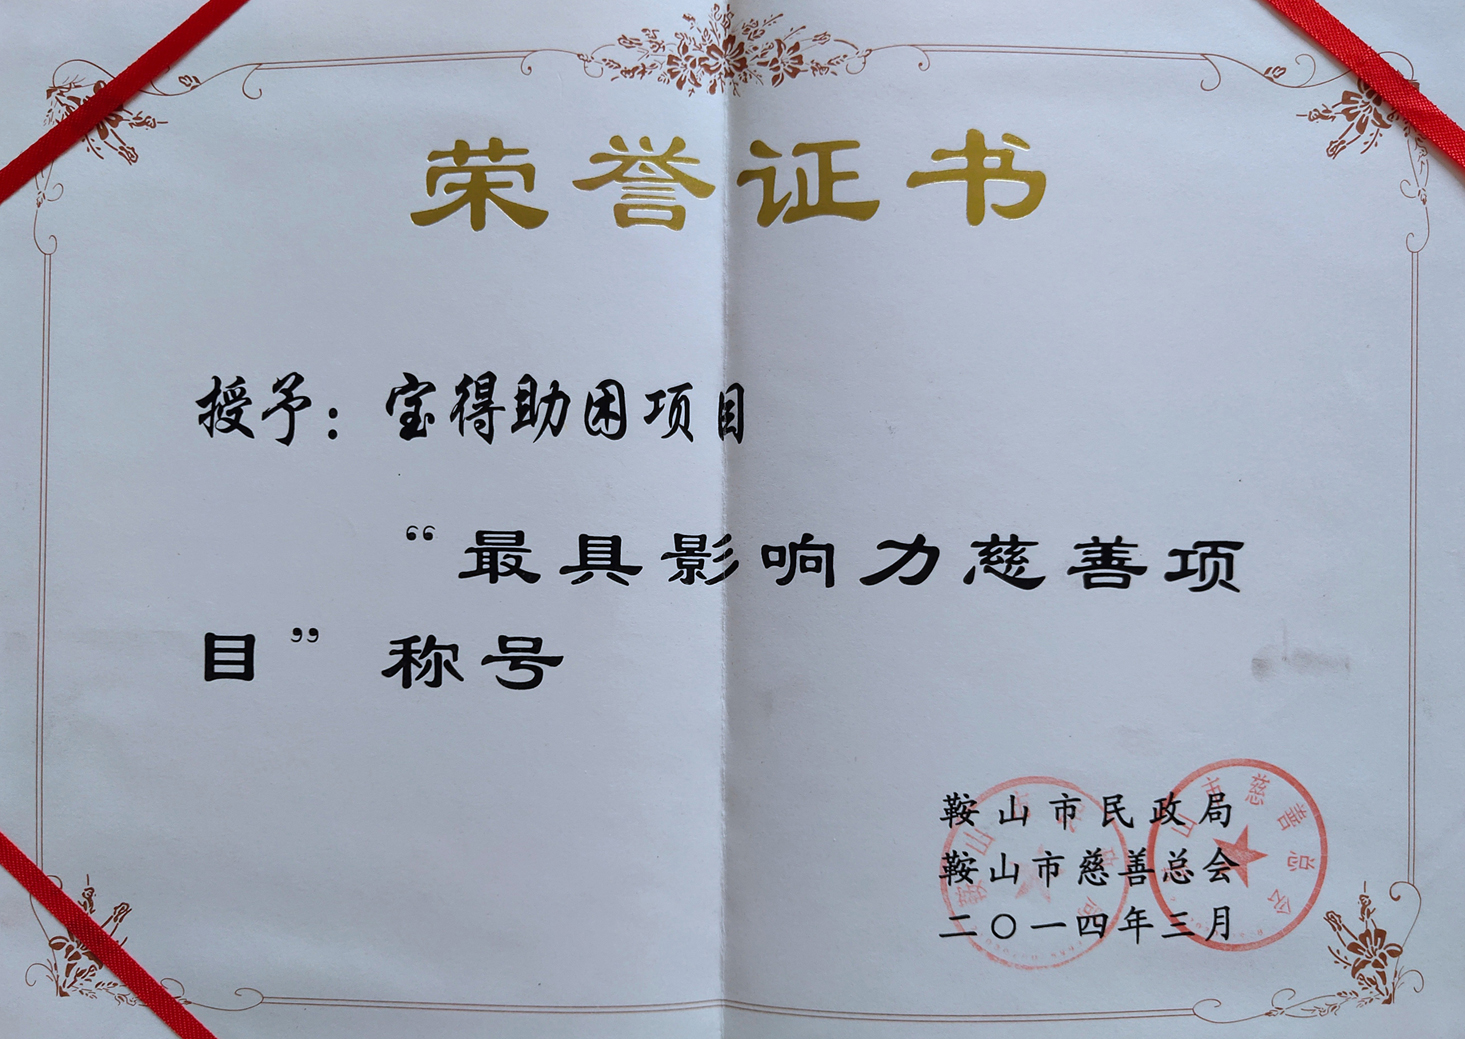 荣誉证书
授予：宝得助困项目
“最具影响力慈善项
目”称号
鞍山市民政局
鞍山市慈善总会
二〇一四年三月